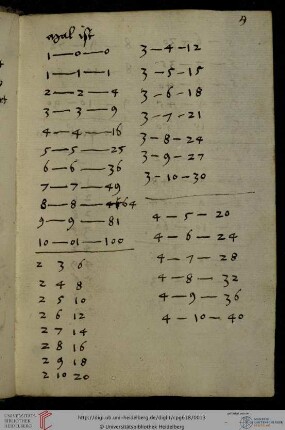 9
mal ist
1 — 0 — 0
1 — 1 — 1
2 — 2 — 4
3 — 3 — 9
4 — 4 — 16
5 — 5 — 25
6 — 6 — 36
7 — 7 — 49
8 — 8 — 64
9 — 9 — 81
10 — 01 — 100
2 3 6
2 4 8
2 5 10
2 6 12
2 7 14
2 8 16
2 9 18
2 10 20
3 – 4 – 12
3 – 5 – 15
3 – 6 – 18
3 – 7 – 21
3 – 8 – 24
3 – 9 – 27
3 – 10 – 30
4 – 5 – 20
4 – 6 – 24
4 – 7 – 28
4 – 8 – 32
4 – 9 – 36
4 – 10 – 40
© Universitätsbibliothek Heidelberg